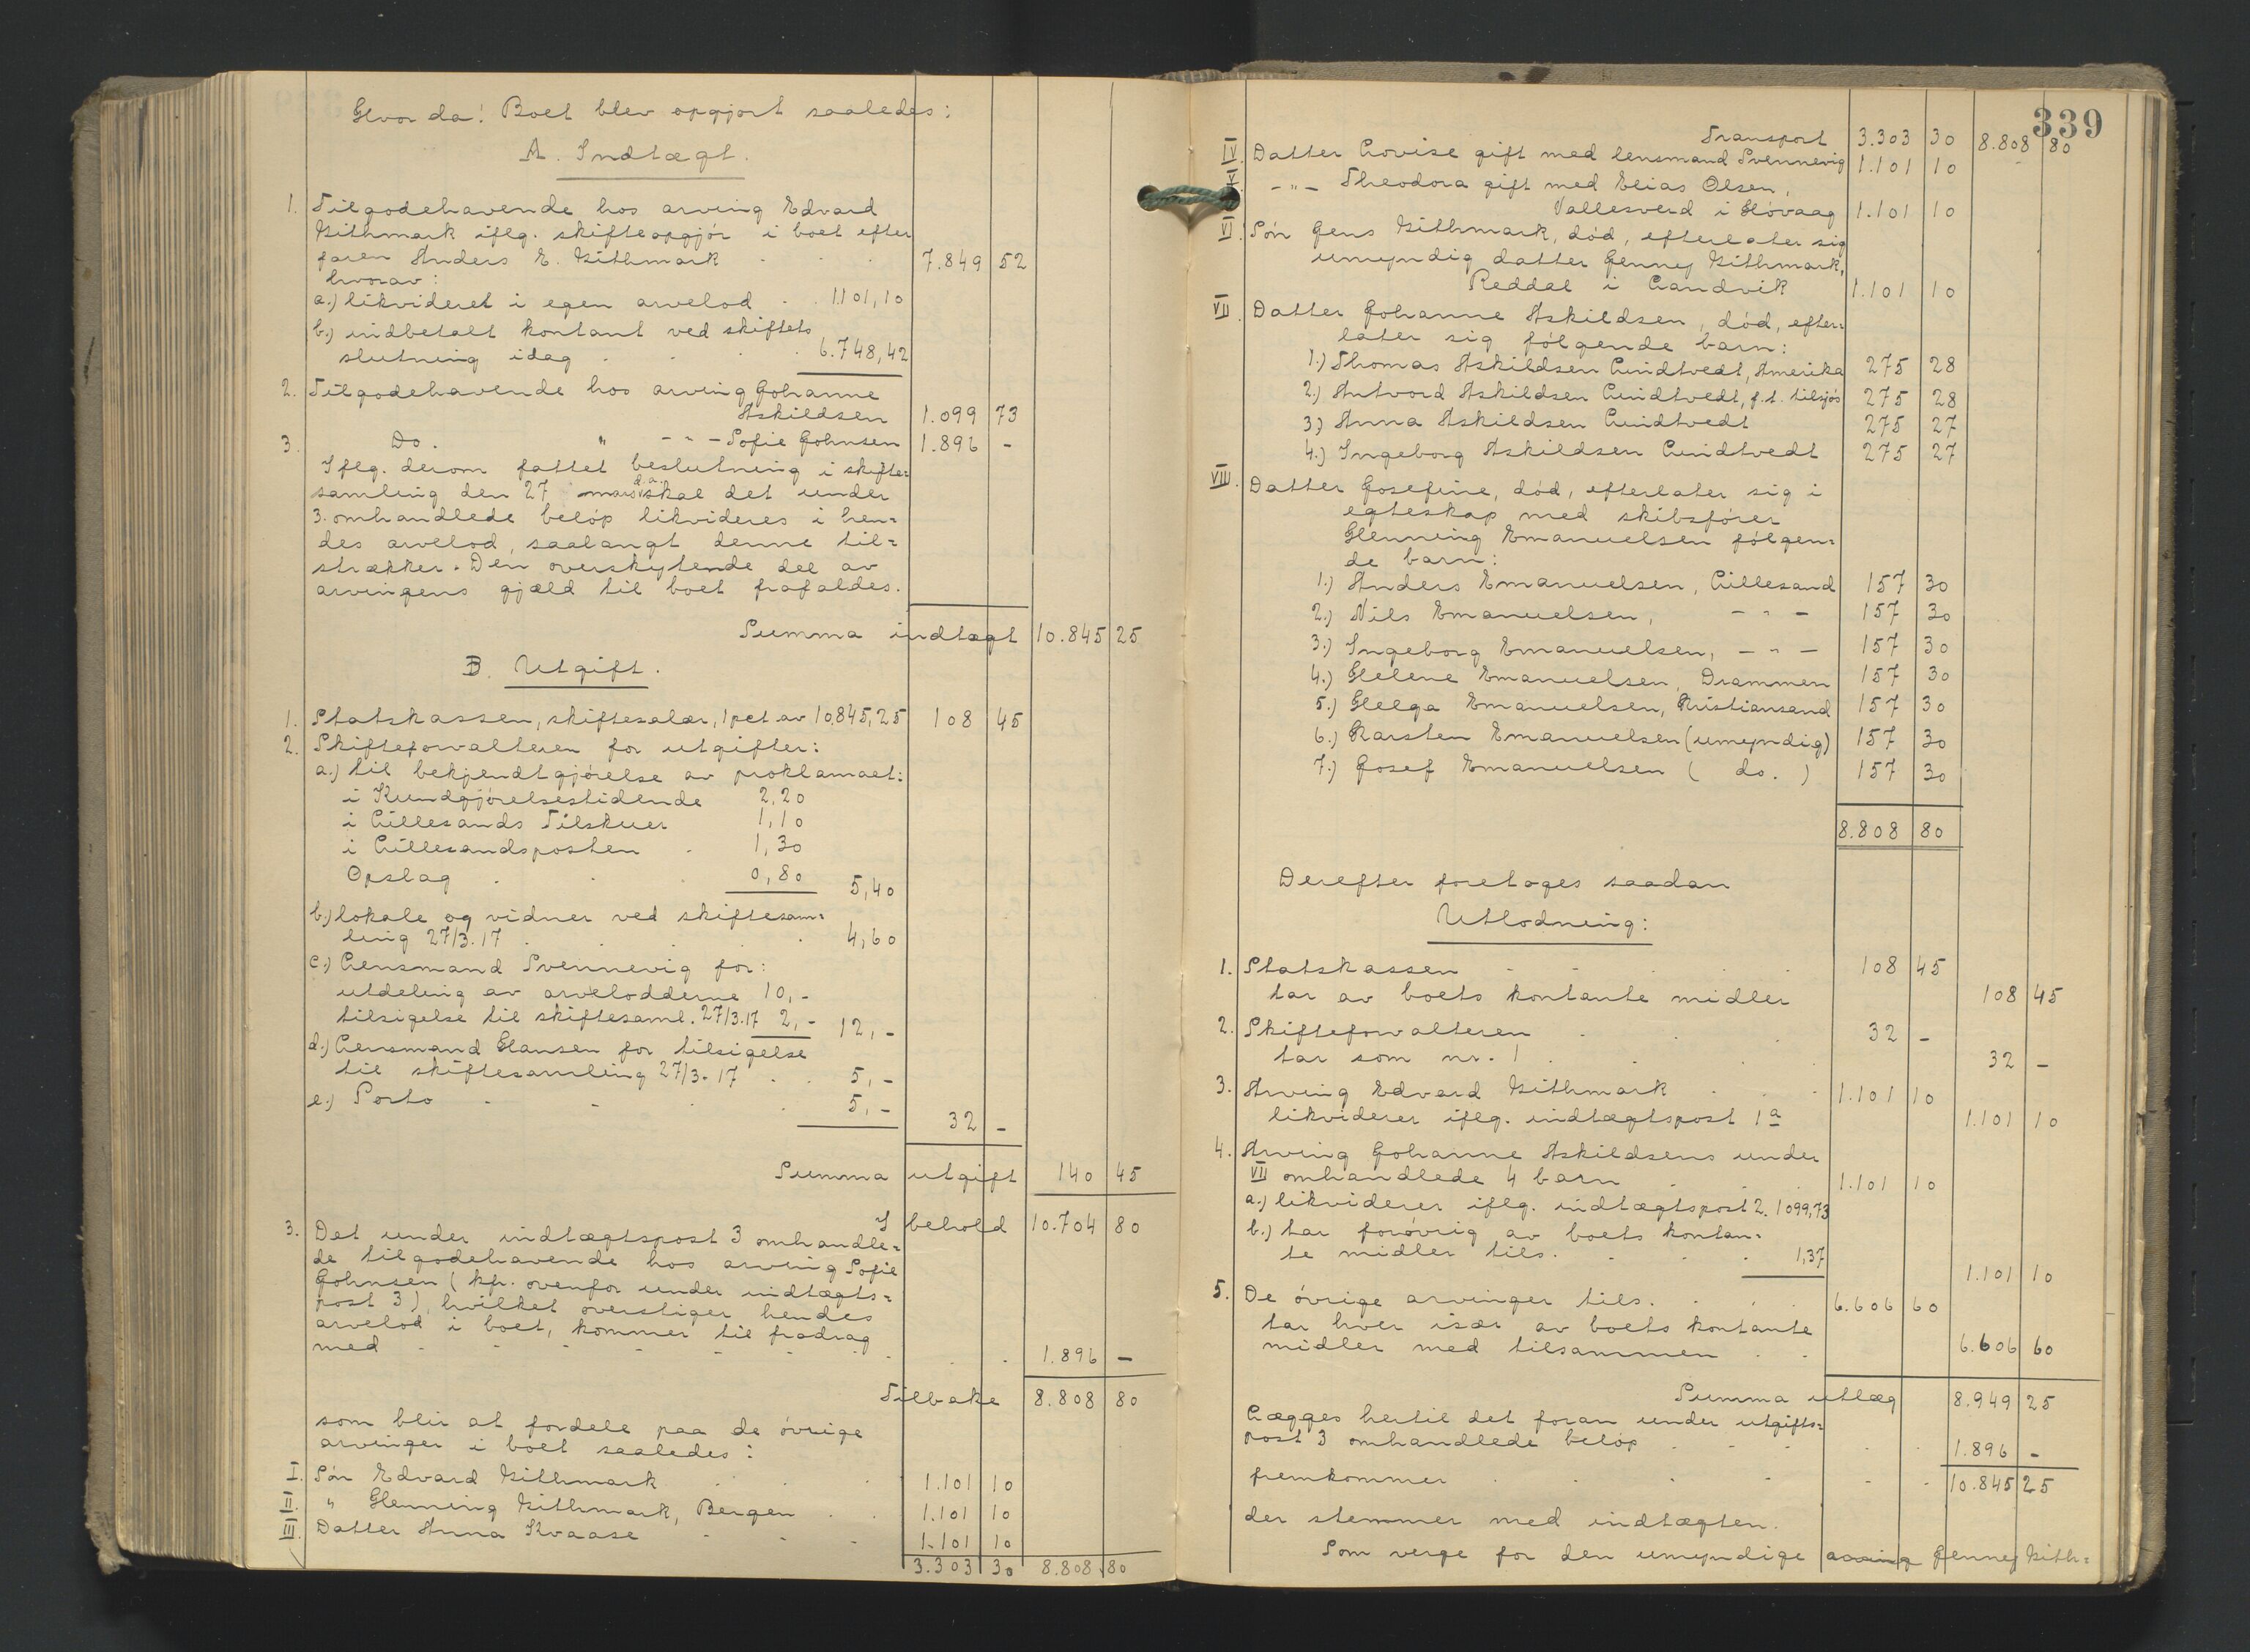 Hvorda: Boet blev opgjort saaledes:
A. Indtægt.
1. Tilgodehavende hos arving Edvard
Githmark iflg. skifteopgjör i boet efter
faren Anders E. Githmark 7.849 52
hvorav:
a.) likvideret i egen arvelod 1101,10
b.) indbetalt kontant ved skiftets
slutning idag 6.748,42
2. Tilgodehavende hos arving Johanne
Askildsen 1.099 73
3. Do. " - " - Sofie Johnsen 1.896 -
Iflg. derom fattet beslutning i skifte=
samling den 27 mars d.a. skal det under
3. omhandlede belöp likvideres i hen=
des arvelod, saalangt denne til=
strækker. Den overskytende del av
arvingens gjæld til boet frafaldes.
Summa indtægt 10.845 25
B. Utgift.
1. Statskassen, skiftesalær, 1 pct. av 10.845,25 108 45
2. Skifteforvalteren for utgifter:
a.) til bekjendtgjörelse av proklamaet:
i Kundgjörelsestidende 2,20
i Lillesands Tilskuer 1,10
i Lillesandsposten 1,30
Opslag 0,80 5,40
b.) lokale og vidner ved skiftesam=
ling 27/3.17 4,60
c.) Lensmand Svennevig for:
utdeling av arvelodderne 10,-
tilsigelse til skiftesaml. 27/3.17 2,- 12,-
d.) Lensmand Hansen for tilsigelse
til skiftesamling 27/3.17 5,-
e.) Porto 5,-
32 -
Summa utgift 140 45
I behold 10.704 80
3. Det under indtægtspost 3 omhandle=
de tilgodehavende hos arving Sofie
Johnsen (kfr. ovenfor under indtægts=
post 3), hvilket overstiger hendes
arvelod i boet, kommer til fradrag
med 1.896 -
Tilbake 8.808 80
som blir at fordele paa de övrige
arvinger i boet saaledes:
I. Sön Edvard Githmark 1.101 10
II. " Henning Githmark, Bergen 1.101 10
III. Datter Anna Kvaase 1.101 10
3.303 30 8.808 80
339
Transport 3.303 30 8.808 80
IV. Datter Lovise gift med lensmand Svennevig 1.101 10
V. - " - Theodora gift med Elias Olsen,
Vallesverd i Hövaag 1.101 10
VI. Sön Jens Githmark, död, efterlater sig
umyndig datter Jenney Githmark,
Reddal i Landvik 1.101 10
VII. Datter Johanne Askildsen, död, efter=
later sig fölgende barn:
1.) Thomas Askildsen Lindtvedt, Amerika 275 28
2.) Antvord Askildsen Lindtvedt, f.t. tilsjös 275 28
3.) Anna Askildsen Lindtvedt 275 27
4.) Ingeborg Askildsen Lindtvedt 275 27
VIII. Datter Josefine, död, efterlater sig i
egteskap med skibsförer
Henning Emanuelsen fölgen=
de barn:
1.) Anders Emanuelsen, Lillesand 157 30
2.) Nils Emanuelsen, - " - 157 30
3.) Ingeborg Emanuelsen, - " - 157 30
4.) Helene Emanuelsen, Drammen 157 30
5.) Helga Emanuelsen, Kristiansand 157 30
6.) Karsten Emanuelsen (umyndig) 157 30
7.) Josef Emanuelsen ( do. ) 157 30
8.808 80
Derefter foretoges saadan
Utlodning:
1. Statskassen 108 45
tar av boets kontante midler 108 45
2. Skifteforvalteren 32 -
tar som nr. 1 32 -
3. Arving Edvard Githmark 1.101 10
likviderer iflg. indtægtspost 1a 1.101 10
4. Arving Johanne Askildsens under
VII omhandlede 4 barn 1.101 10
a.) likviderer iflg. indtægtspost 2. 1099,73
b.) tar forövrig av boets kontan=
te midler tils. 1,37
1.101 10
5. De övrige arvinger tils. 6.606 60
tar hver især av boets kontante
midler med tilsammen 6.606 60
Summa utlæg 8.949 25
Lægges hertil det foran under utgifts=
post 3 omhandlede belöp 1.896 -
fremkommer 10.845 25
der stemmer med indtægten.
Som verge for den umyndige arving Jenney Gith=